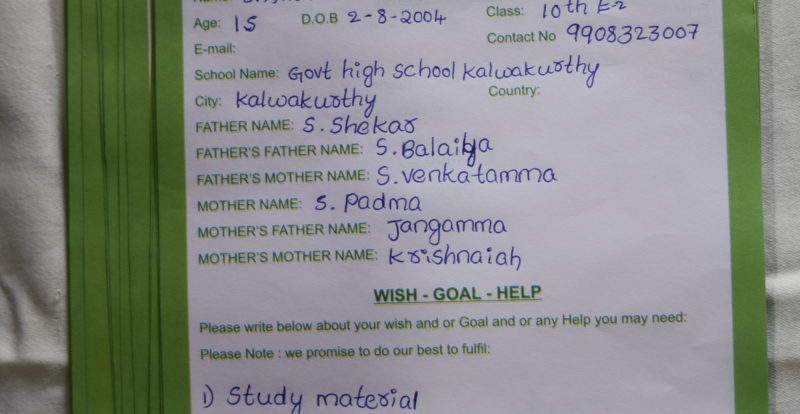 Age: 15 D.O.B 2-8-2004 Class: 10th E-2
E-mail: Contact No 9908323007
School Name: Govt high school kalwakurthy
City: kalwakurthy Country:
FATHER NAME: S. Shekar
FATHER'S FATHER NAME: S. Balaiya
FATHER'S MOTHER NAME: S. venkatamma
MOTHER NAME: S. Padma
MOTHER'S FATHER NAME: Jangamma
MOTHER'S MOTHER NAME: Krishnaiah
WISH - GOAL - HELP
Please write below about your wish and or Goal and or any Help you may need:
Please Note : we promise to do our best to fulfil:
1) Study material